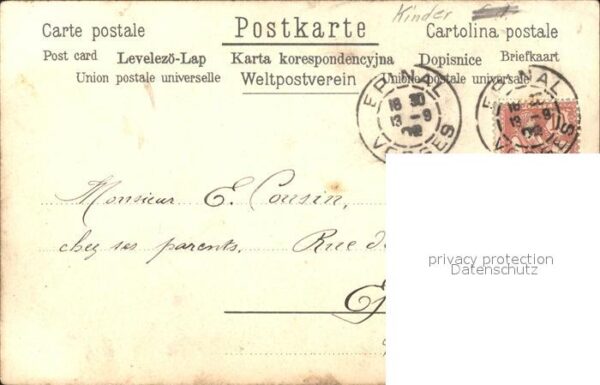 Kinder
Carte postale Postkarte Cartolina postale
Post card Levelező-Lap Karta korespondencyjna Dopisnice Briefkaart
Union postale universelle Weltpostverein Unione postale universale
EPINAL
18 30
13 - 9
VOSGES
EPINAL
13 - 9
VOSGES
Monsieur E. Cousin,
chez ses parents. Rue de
privacy protection
Datenschutz